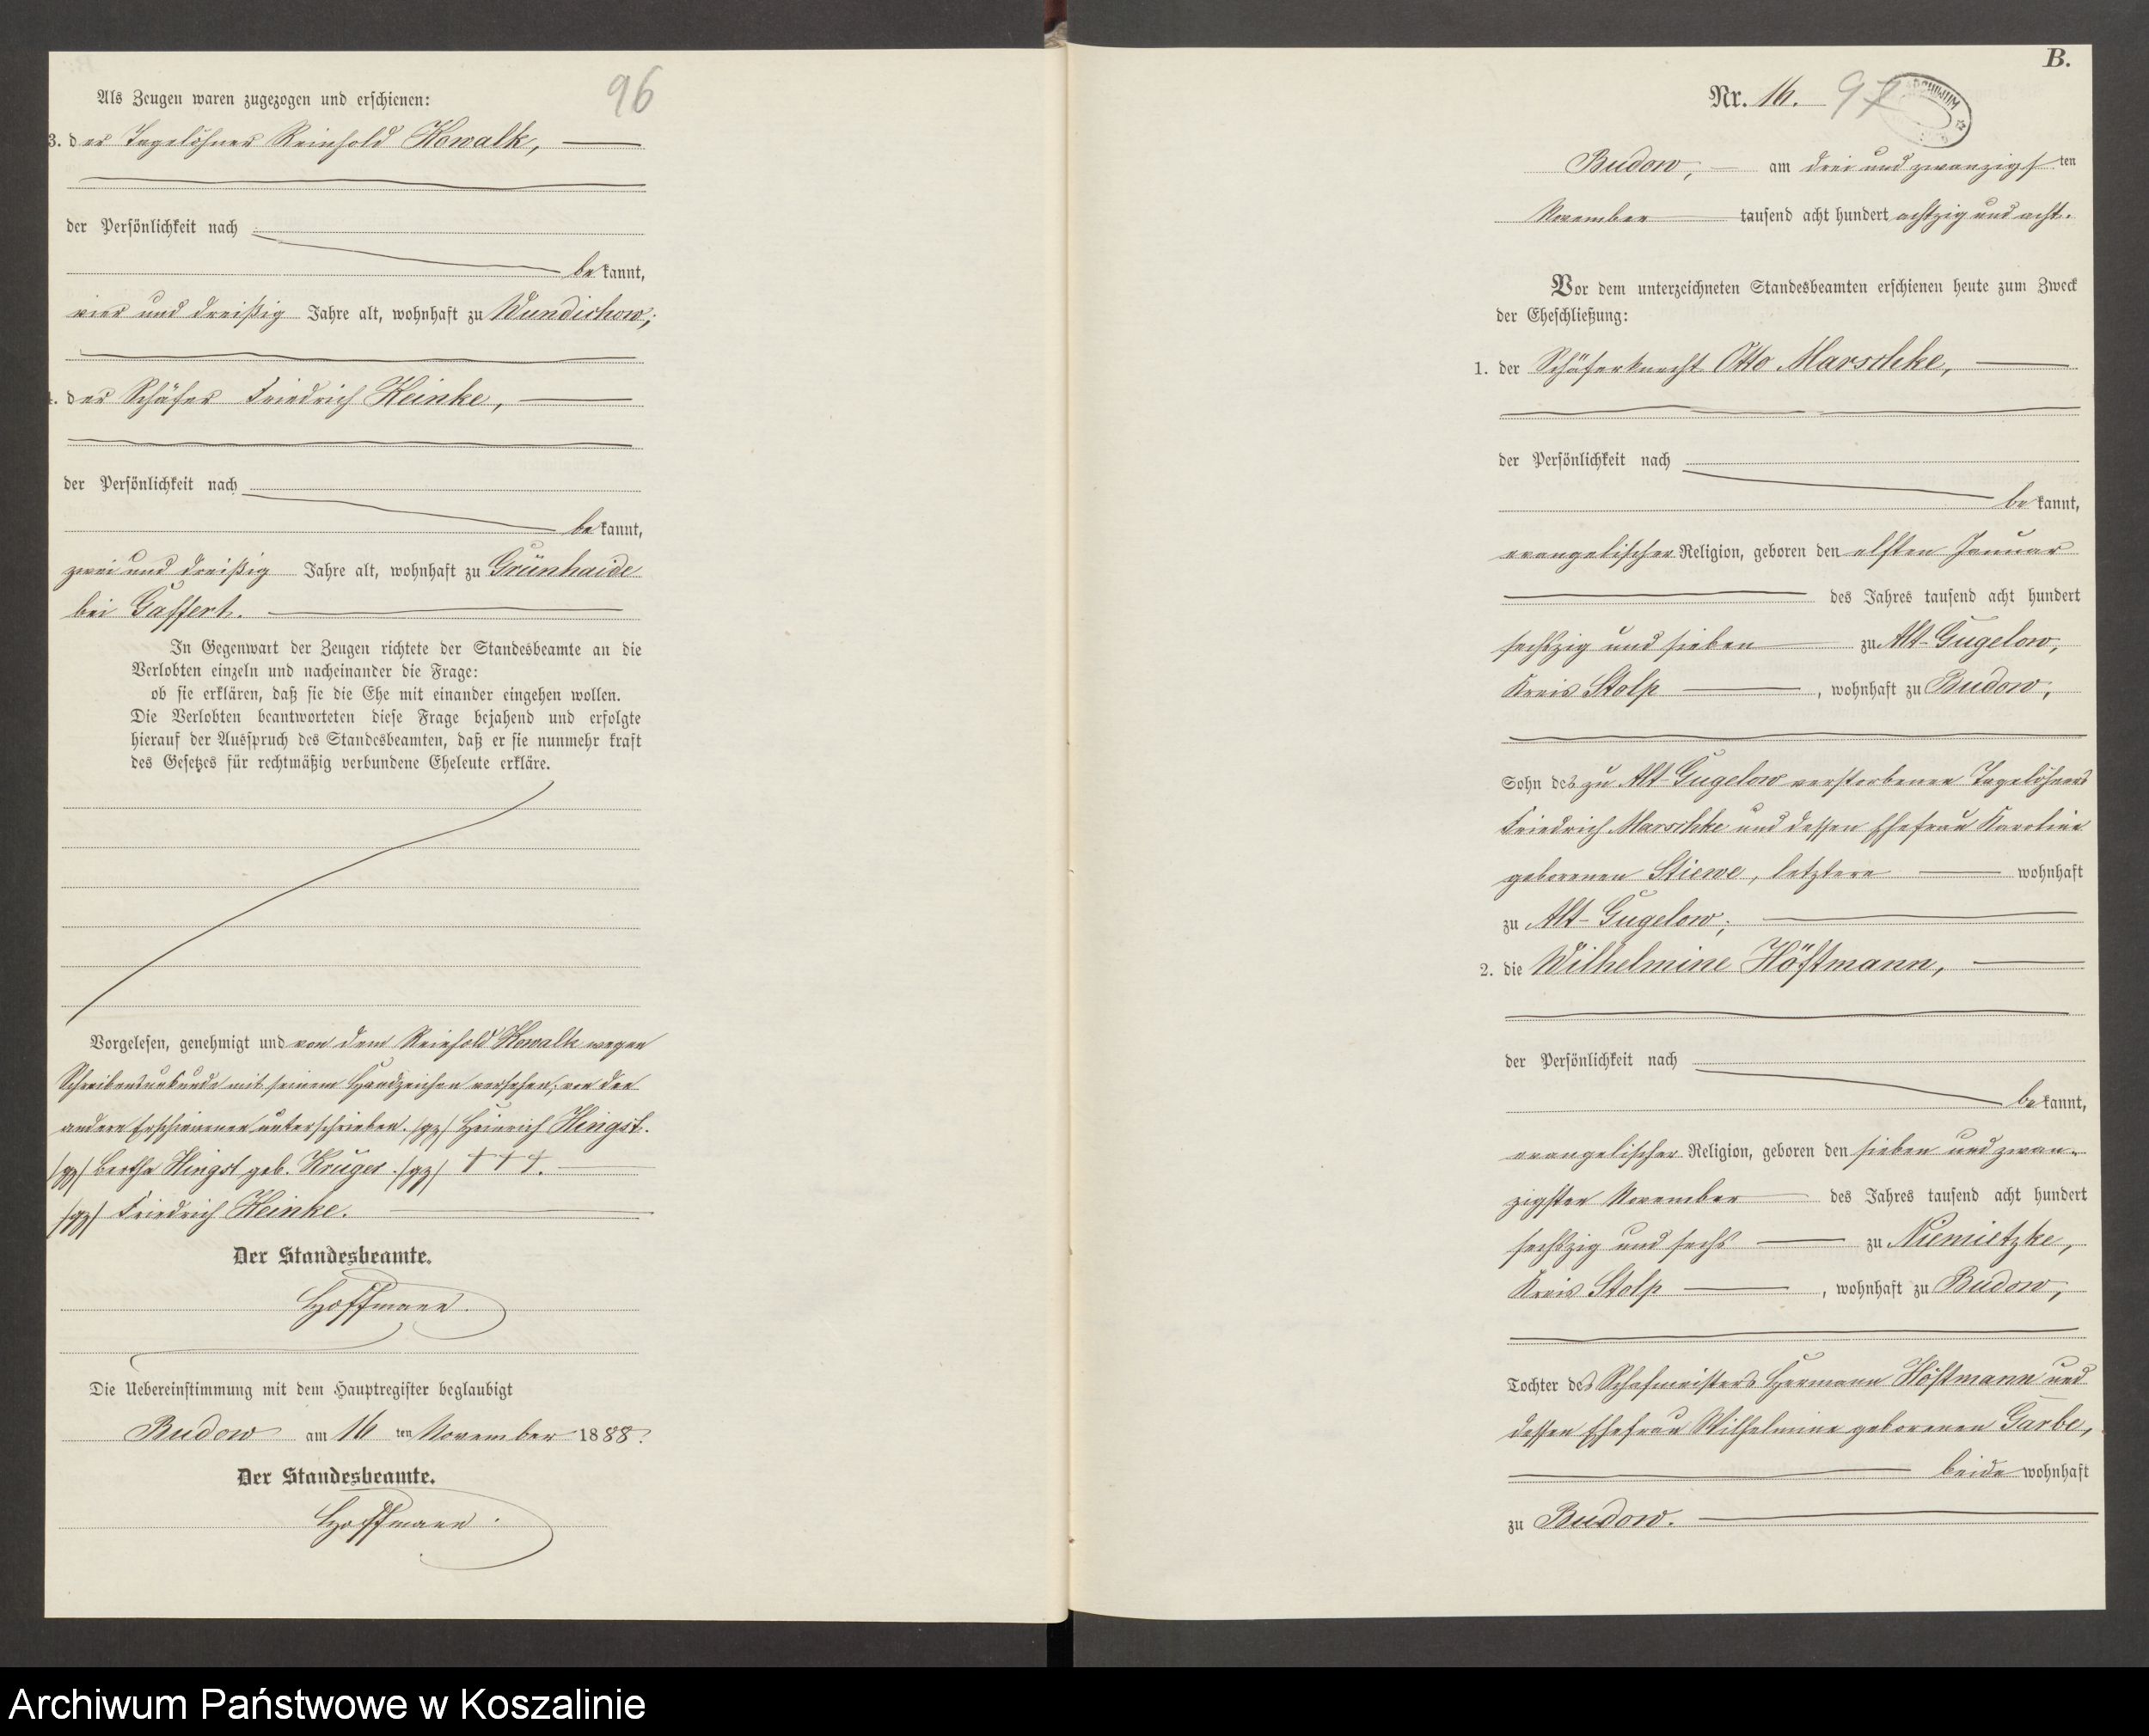 96
Als Zeugen waren zugezogen und erschienen:
3. der Tagelöhner Reinhold Kowalk,
der Persönlichkeit nach
bekannt,
vier und dreißig Jahre alt, wohnhaft zu Wundichow;
4. der Schäfer Friedrich Heinke,
der Persönlichkeit nach
bekannt,
zwei und dreißig Jahre alt, wohnhaft zu Grünhaide
bei Gaffert.
In Gegenwart der Zeugen richtete der Standesbeamte an die
Verlobten einzeln und nacheinander die Frage:
ob sie erklären, daß sie die Ehe mit einander eingehen wollen.
Die Verlobten beantworteten diese Frage bejahend und erfolgte
hierauf der Ausspruch des Standesbeamten, daß er sie nunmehr kraft
des Gesetzes für rechtmäßig verbundene Eheleute erkläre.
Vorgelesen, genehmigt und von dem Reinhold Kowalk wegen
Schreibensunkunde mit seinem Handzeichen versehen; von den
andern Erschienenen unterschrieben. /gz/ Heinrich Hingst.
/gz/ Bertha Hingst geb. Krüger. /gz/ +++.
/gz/ Friedrich Heinke.
Der Standesbeamte.
Hoffmann.
Die Uebereinstimmung mit dem Hauptregister beglaubigt
Budow am 16 ten November 1888.
Der Standesbeamte.
Hoffmann.
B.
Nr. 16. 97
ARCHIWUM
Budow, am drei und zwanzigsten
November tausend acht hundert achtzig und acht.
Vor dem unterzeichneten Standesbeamten erschienen heute zum Zweck
der Eheschließung:
1. der Schäferknecht Otto Marschke,
der Persönlichkeit nach
bekannt,
evangelischer Religion, geboren den elften Januar
des Jahres tausend acht hundert
sechszig und sieben zu Alt-Gugelow,
Kreis Stolp, wohnhaft zu Budow,
Sohn des zu Alt-Gugelow verstorbenen Tagelöhners
Friedrich Marschke und dessen Ehefrau Karoline
geborenen Stiewe, letztere wohnhaft
zu Alt-Gugelow;
2. die Wilhelmine Höftmann,
der Persönlichkeit nach
bekannt,
evangelischer Religion, geboren den sieben und zwan-
zigsten November des Jahres tausend acht hundert
sechszig und sechs zu Niemietzke,
Kreis Stolp, wohnhaft zu Budow,
Tochter des Schafmeisters Hermann Höftmann und
dessen Ehefrau Wilhelmine geborenen Garbe,
beide wohnhaft
zu Budow.
Archiwum Państwowe w Koszalinie